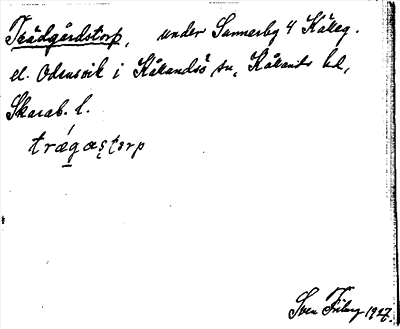 Trädgårdstorp, under Sannerby 4 Kåkeg.
el. Odensvik i Kållandsö sn, Kållands hd,
Skarab. l.
trǽgaʂtɔrp
Sven Friberg 1927.